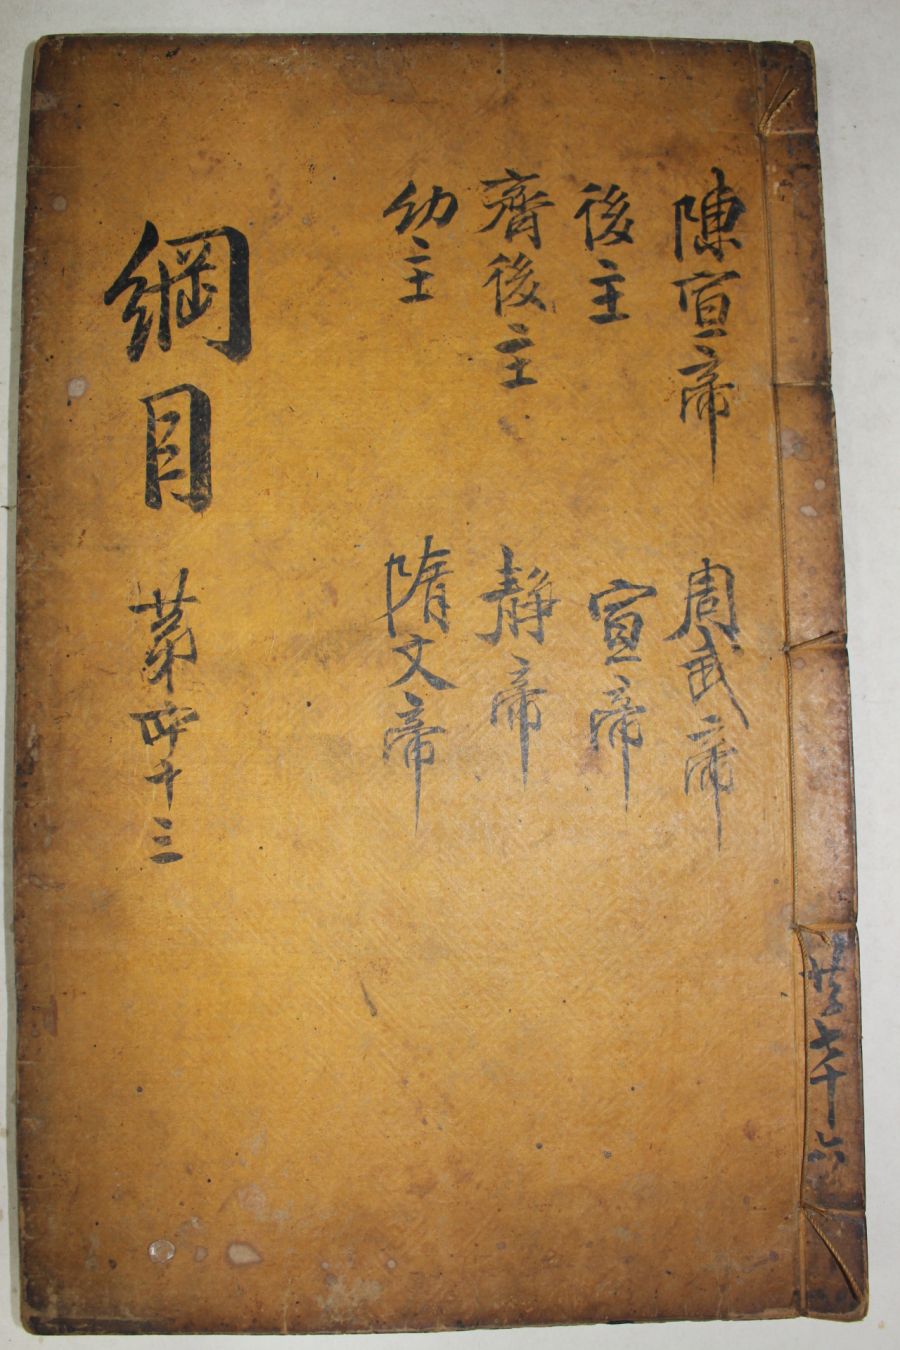 陳宣帝
後主
齊後主
幼主
周武帝
宣帝
靜帝
隋文帝
綱目 第四十三
共七十六